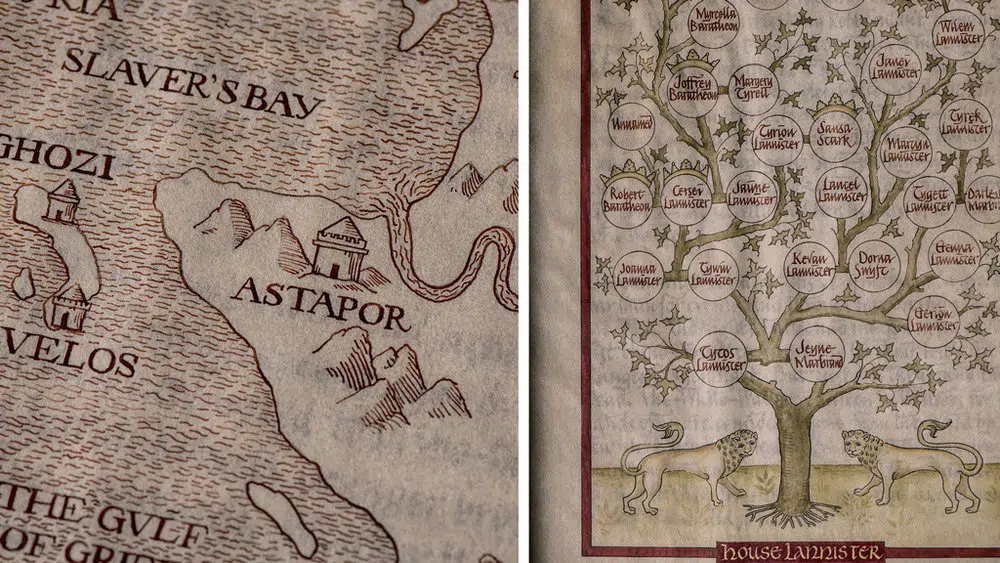 RIA
SLAVER'S BAY
GHOZI
ASTAPOR
VELOS
THE GVLF
OF GRIEF
Myrcella
Baratheon
Wilem
Lannister
Janei
Lannister
Joffrey
Baratheon
Margery
Tyrell
Unnamed
Tyrion
Lannister
Sansa
Stark
Martyn
Lannister
Tyrek
Lannister
Robert
Baratheon
Cersei
Lannister
Jaime
Lannister
Lancel
Lannister
Tygett
Lannister
Joanna
Lannister
Tywin
Lannister
Kevan
Lannister
Dorna
Swyft
Genna
Lannister
Gerion
Lannister
Tytos
Lannister
Jeyne
Marbrand
HOUSE LANNISTER